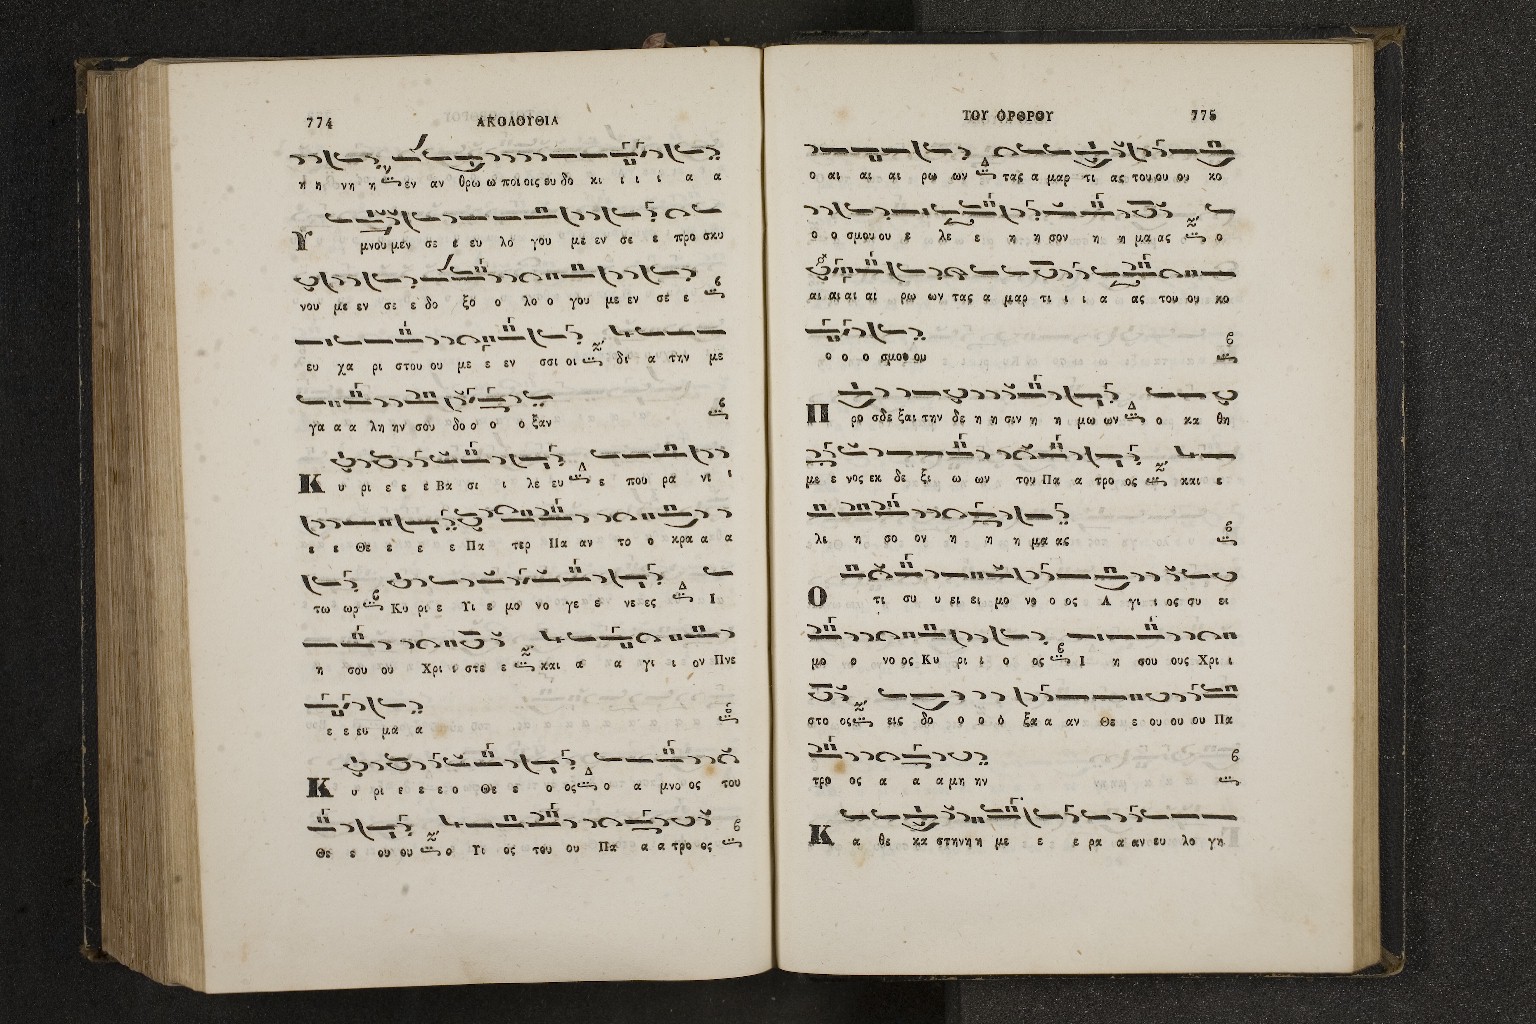 774 ΑΚΟΛΟΥΘΙΑ
η η νη η εν αν θρω ω ποι οις ευ δο κι ι ι ι α α
Υ μνου μεν σε ε ευ λο γου με εν σε ε προ σκυ
νου με εν σε ε δο ξο ο λο ο γου με εν σε ε
ευ χα ρι στου ου με ε εν σσι οι δι α την με
γα α α λη ην σου δο ο ο ο ξαν
Κ υ ρι ε ε ε Βα σι ι λε ευ ε που ρα νι ι
ε ε Θε ε ε ε Πα τερ Πα αν το ο κρα α α
τω ωρ Κυ ρι ε Υι ε μο νο γε ε νε ες Ι
η σου ου Χρι ι στε ε και α α γι ι ον Πνε
ε ε ευ μα α
Κ υ ρι ε ε ε ο Θε ε ο ος ο α μνο ος του
Θε ε ου ου ο Υι ος του ου Πα α α τρο ος
ΤΟΥ ΟΡΘΡΟΥ 775
ο αι αι αι ρω ων τας α μαρ τι ας του ου ου κο
ο ο σμου ου ε λε ε η η σον η η μα ας ο
αι αι αι αι ρω ων τας α μαρ τι ι ι α ας του ου κο
ο ο ο σμου ου
Π ρο σδε ξαι την δε η η σιν η η μω ων ο κα θη
με ε νος εκ δε ξι ω ων του Πα α τρο ος και ε
λε η σο ον η η η μα ας
Ο τι συ υ ει ει μο νο ο ος Α γι ι ος συ ει
μο ο νο ος Κυ ρι ι ο ος Ι η σου ους Χρι ι
στο ος εις δο ο ο ο ξα α αν Θε ε ου ου ου Πα
τρο ος α α α μη ην
Κ α θε κα στην η η με ε ε ρα α αν ευ λο γη